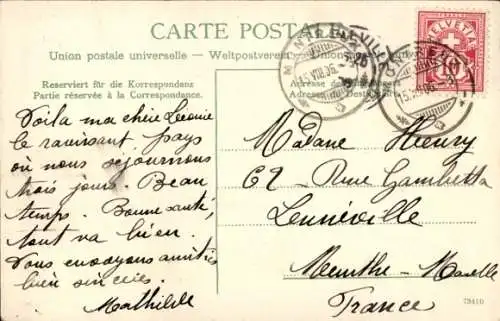 CARTE POSTALE
Union postale universelle — Weltpostverein — Unione
Reserviert für die Korrespondenz
Partie réservée à la Correspondance.
HELVETIA
10
Voilà ma chère Léonie
le ravissant pays
où nous séjournons
trois jours. Beau
temps. Bonne santé,
tout va bien.
Vous envoyons amitiés
bien sincères.
Mathilde
Madame Henry
62 - Rue Gambetta
Lunéville
Meurthe-Moselle
France